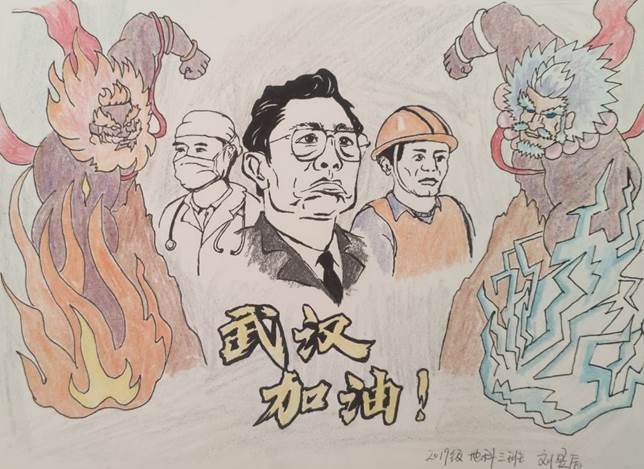 武汉
加油！
2017级 地科三班 刘昱辰